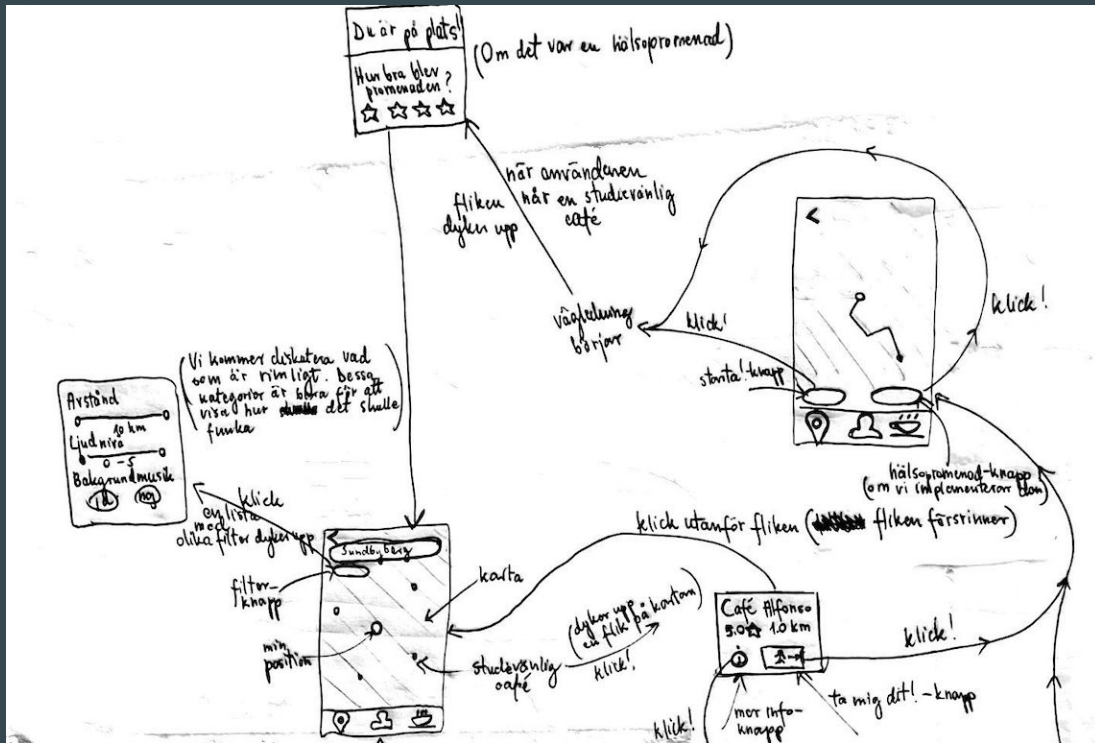 Du är på plats!
(Om det var en hälsopromenad)
Hur bra blev
promenaden?
när användaren
når en studievänlig
café
fliken
dyker upp
klick!
vägledning
börjar
klick!
starta!-knapp
hälsopromenad-knapp
(om vi implementerar den)
(Vi kommer diskutera vad
som är rimligt. Dessa
kategorier är bara för att
visa hur det skulle
funka)
Avstånd
10 km
Ljudnivå
0-5
Bakgrundmusik
ja nej
klick
en lista
med
olika filter dyker upp
Sundbyberg
filter-
knapp
karta
min
position
studievänlig
café
(dyker upp
en flik på kartan)
klick!
klick utanför fliken ( fliken försvinner)
Café Alfonso
5.0 1.0 km
i
klick!
klick!
mer info-
knapp
ta mig dit!-knapp